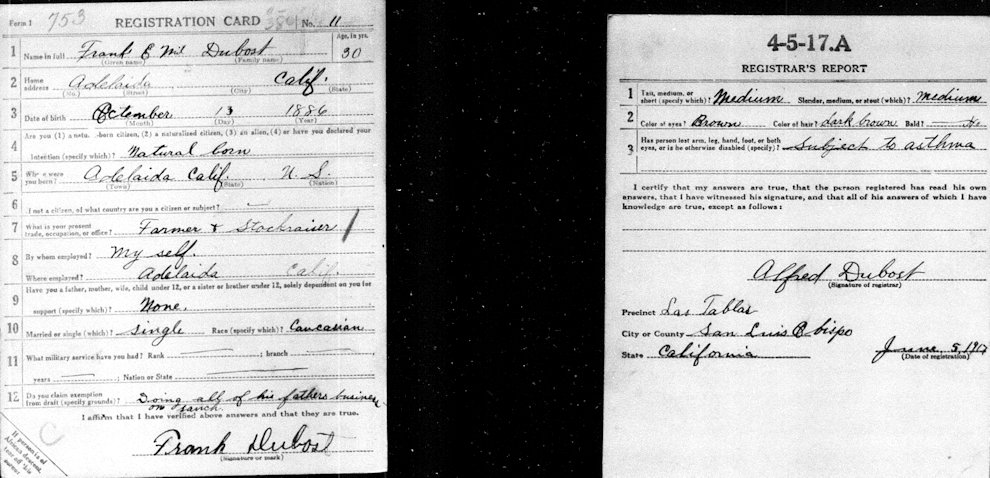 Form 1 753 REGISTRATION CARD No. 11
1 Name in full Frank E Mil Dubost Age, in yrs. 30
(Given name) (Family name)
2 Home address Adelaida Calif.
(No.) (Street) (City) (State)
3 Date of birth Octember 13 1886
(Month) (Day) (Year)
4 Are you (1) a natural-born citizen, (2) a naturalized citizen, (3) an alien, (4) or have you declared your
intention (specify which)? Natural born
5 Where were you born? Adelaida Calif. U. S.
(Town) (State) (Nation)
6 If not a citizen, of what country are you a citizen or subject? —
7 What is your present trade, occupation, or office? Farmer & Stockraiser
8 By whom employed? My self.
Where employed? Adelaida Calif.
9 Have you a father, mother, wife, child under 12, or a sister or brother under 12, solely dependent on you for
support (specify which)? None.
10 Married or single (which)? Single Race (specify which)? Caucasian
11 What military service have you had? Rank — ; branch —
years — ; Nation or State —
12 Do you claim exemption from draft (specify grounds)? Doing all of his fathers business
on ranch.
I affirm that I have verified above answers and that they are true.
C
Frank Dubost
(Signature or mark)
If person is of
African descent,
tear off this
corner
4-5-17.A
REGISTRAR'S REPORT
1 Tall, medium, or short (specify which)? Medium Slender, medium, or stout (which)? medium
2 Color of eyes? Brown Color of hair? dark brown Bald?
3 Has person lost arm, leg, hand, foot, or both eyes, or is he otherwise disabled (specify)? Subject to asthma
I certify that my answers are true, that the person registered has read his own
answers, that I have witnessed his signature, and that all of his answers of which I have
knowledge are true, except as follows:
Alfred Dubost
(Signature of registrar)
Precinct Las Tablas
City or County San Luis Obispo
State California June 5, 1917
(Date of registration)